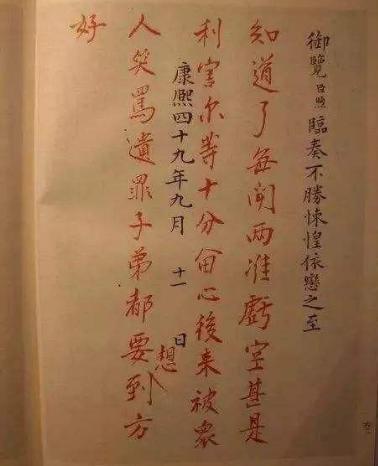 御覽臣煦臨奏不勝悚惶依戀之至
知道了每闻两淮虧空甚是
利害尔等十分留心後来被衆
康熙四十九年九月 十一 日
人笑罵遺罪子弟都要想到方
好